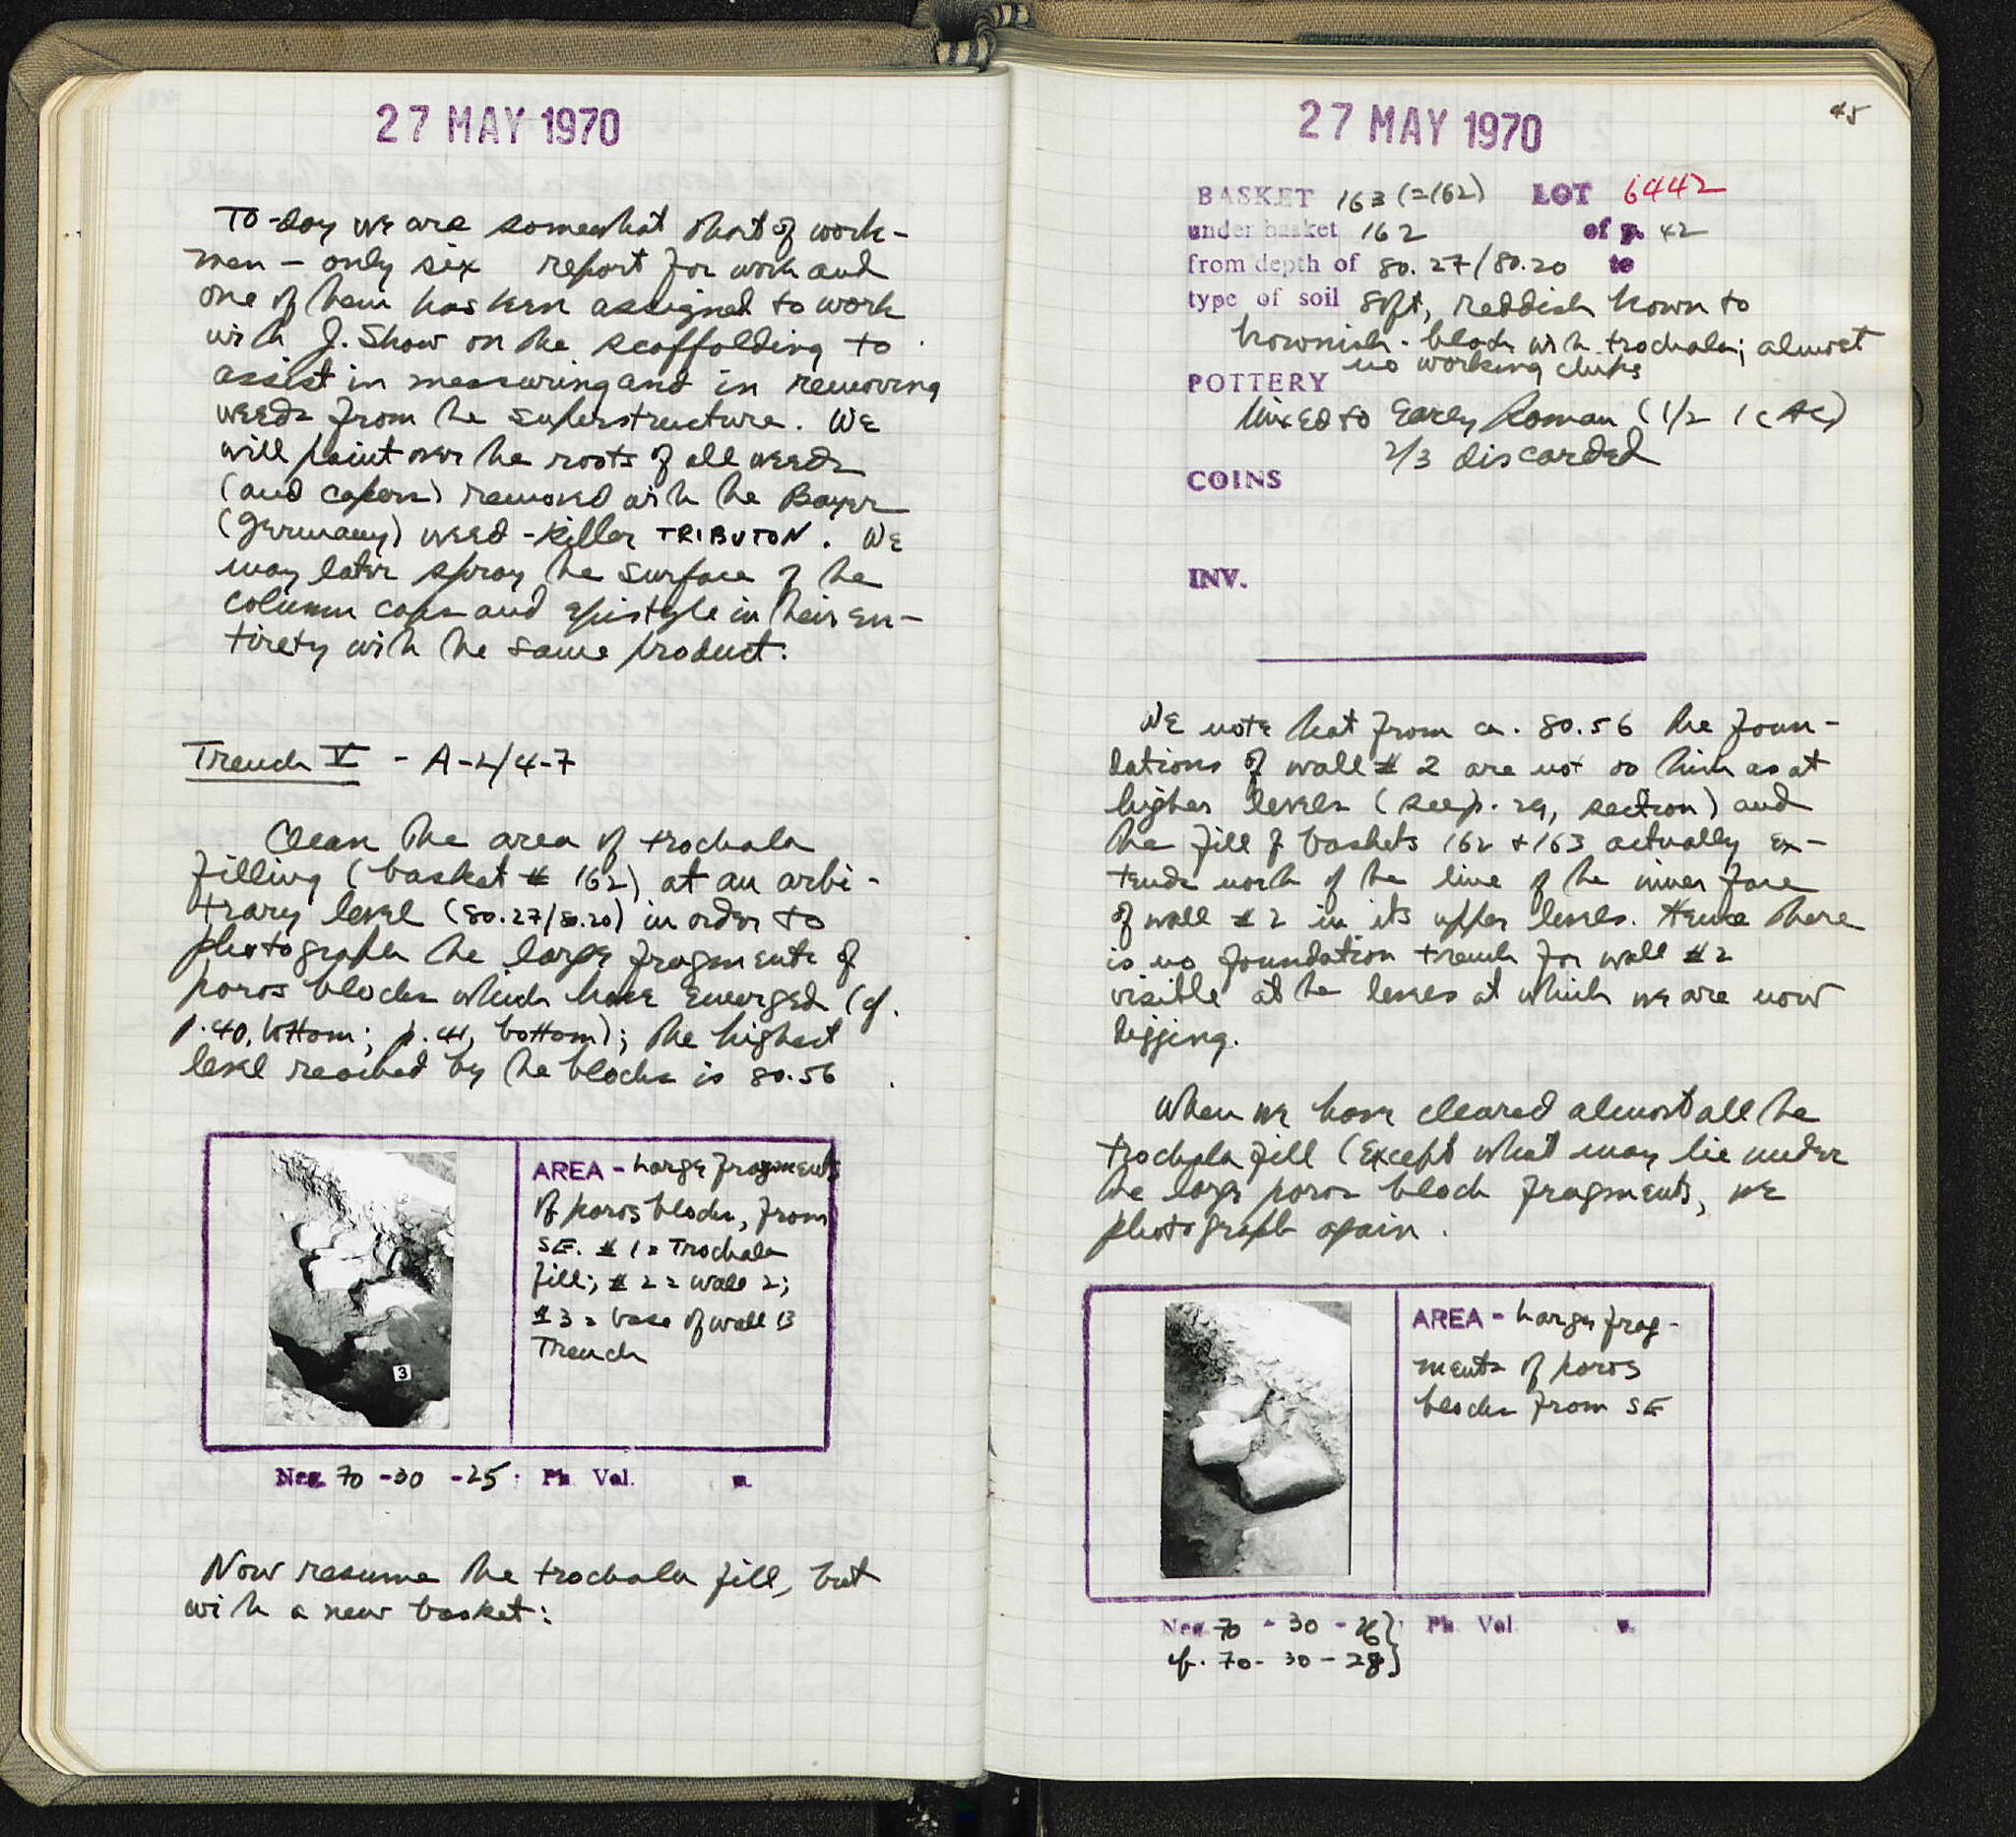 27 MAY 1970
To-day we are somewhat short of work-
men - only six report for work and
one of them has been assigned to work
with J. Shaw on the scaffolding to
assist in measuring and in removing
weeds from the superstructure. We
will paint over the roots of all weeds
(and capers) removed with the Bayer
(Germany) weed-killer TRIBUTON. We
may later spray the surface of the
column caps and epistyle in their en-
tirety with the same product.
Trench V - A-2/4-7
Clean the area of trochala
filling (basket # 162) at an arbi-
trary level (80.27/80.20) in order to
photograph the large fragments of
poros blocks which have emerged (cf.
p. 40, bottom; p. 41, bottom); the highest
level reached by the blocks is 80.56
AREA - Large fragments
of poros blocks, from
SE. # 1 = Trochala
fill; # 2 = wall 2;
# 3 = base of wall 13
Trench
3
Neg. 70 - 30 - 25; Ph. Vol. p.
Now resume the trochala fill, but
with a new basket:
45
27 MAY 1970
BASKET 163 (=162) LOT 6442
under basket 162 of p. 42
from depth of 80.27/80.20 to
type of soil soft, reddish brown to
brownish-black with trochala; almost
no working chips
POTTERY
Mixed to Early Roman (1/2 1 c AC)
2/3 discarded
COINS
INV.
We note that from ca. 80.56 the foun-
dations of wall # 2 are not so thin as at
higher levels (see p. 29, section) and
the fill of baskets 162 + 163 actually ex-
tends north of the line of the inner face
of wall # 2 in its upper levels. Hence there
is no foundation trench for wall # 2
visible at the levels at which we are now
digging.
When we have cleared almost all the
trochala fill (except what may lie under
the large poros block fragments, we
photograph again.
AREA - Large frag-
ments of poros
blocks from SE
Neg. 70 - 30 - 26; Ph. Vol. p.
cf. 70 - 30 - 28